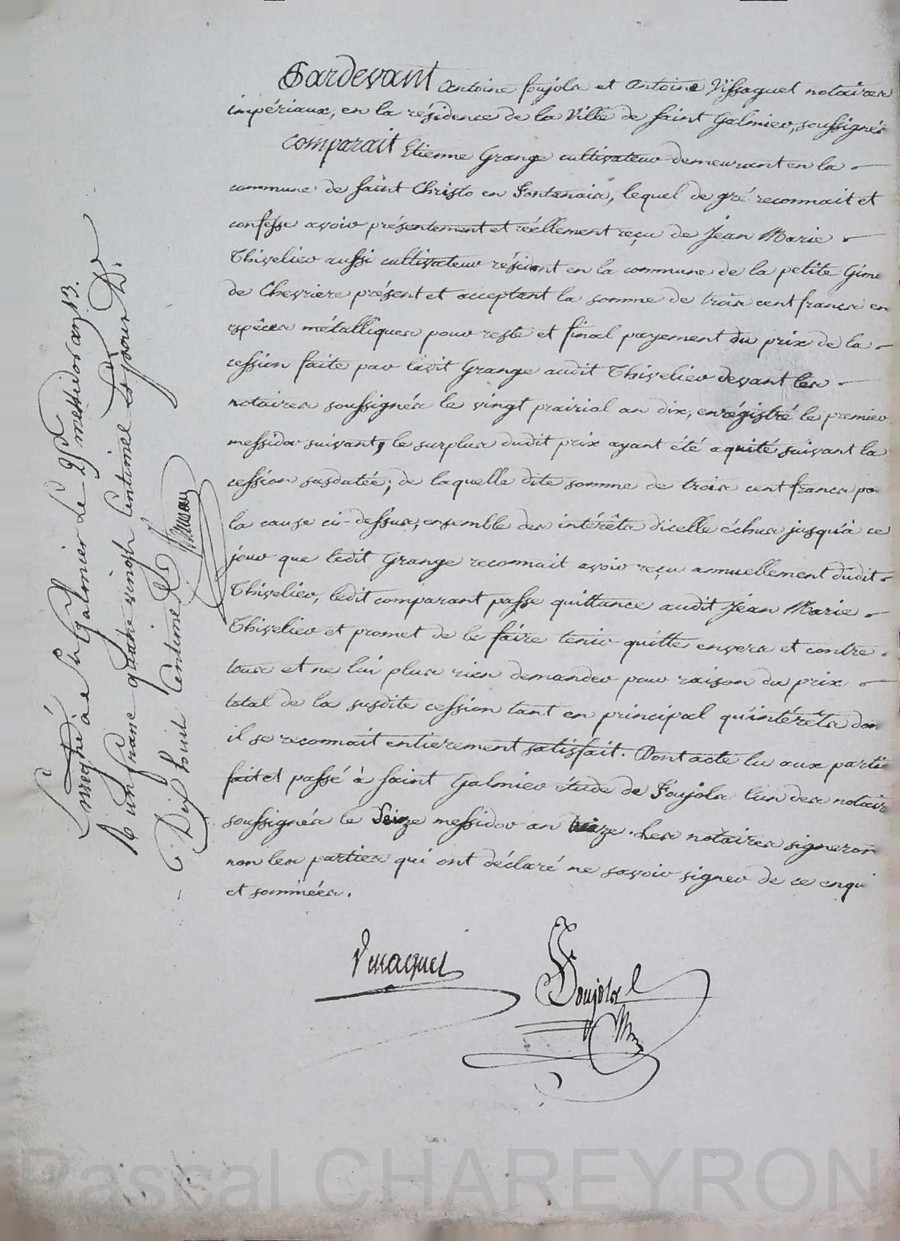 Pardevant Antoine foujols et Antoine Vissaguet notaires
impériaux, en la résidence de la Ville de saint Galmier, soussignés
Comparait Etienne Grange cultivateur demeurant en la
commune de saint Christo en fontanais, lequel de gré reconnait et
confesse avoir présentement et réellement reçu de Jean Marie
Thivelier aussi cultivateur résidant en la commune de la petite Gime
de Chevriere présent et acceptant la somme de trois cent francs en
espèces métalliques pour reste et final payement du prix de la
cession faite par ledit Grange audit Thivelier devant les
notaires soussignés le vingt prairial an dix, enrégistré le premier
messidor suivant, le surplus dudit prix ayant été aquité suivant la
cession susdatée; de laquelle dite somme de trois cent francs po
la cause ci-dessus, ensemble des intérêts dicelle échus jusqu'à ce
jour que ledit Grange reconnait avoir reçu annuellement dudit
Thivelier, ledit comparant passe quittance audit Jean Marie
Thivelier et promet de le faire tenir quitte envers et contre
tous et ne lui plus rien demander pour raison du prix
total de la susdite cession tant en principal qu'intérêts don
il se reconnait entierement satisfait. Dont acte lu aux partie
fait et passé à saint Galmier étude de foujols l'un des notair
soussignés le Seize messidor an treize. Les notaires signeron
non les parties qui ont déclaré ne savoir signer de ce enqui
et sommées.
Vissaguet
Foujols
Enregistré à St Galmier le 29 messidor an 13.
R un franc quatre vingt centimes et pour Dr
Dix huit Centimes
Pascal CHAREYRON